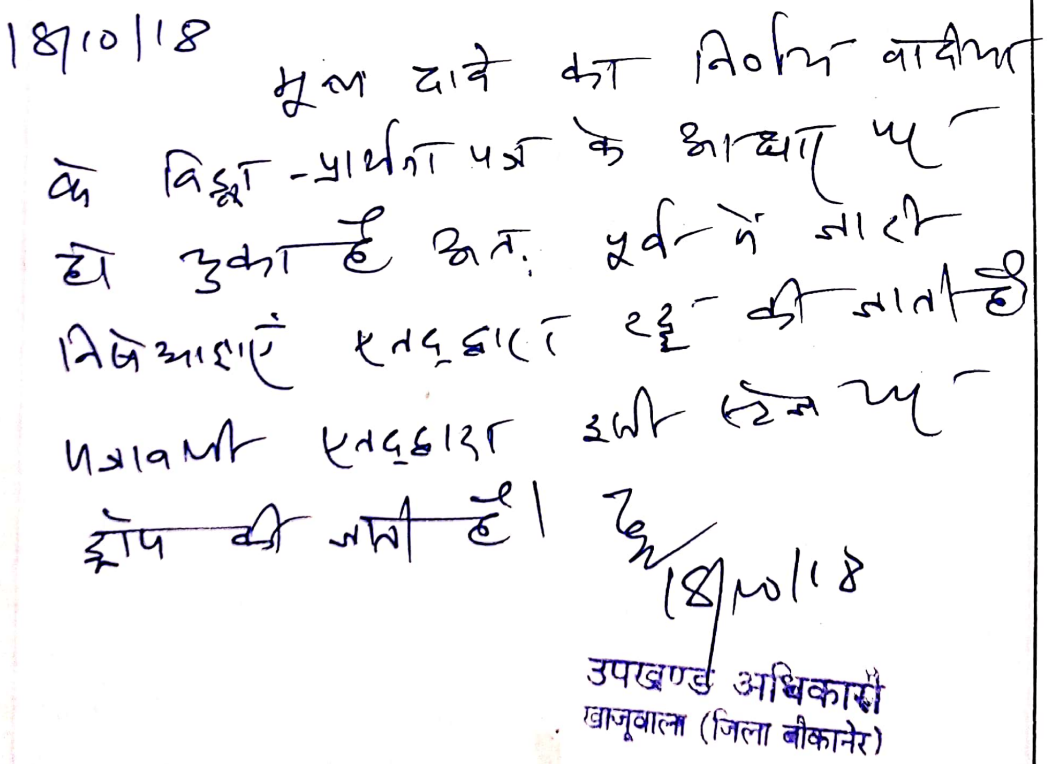 18/10/18
मूल दावे का निर्णय वादीया
के विड्रा-प्रार्थना पत्र के आधार पर
हो चुका है अतः पूर्व में जारी
निषेधाज्ञाएं एतद् द्वारा रद्द की जाती है
पत्रावली एतद्द्वारा इसी स्टेज पर
ड्रोप की जाती है।
18/10/18
उपखण्ड अधिकारी
खाजूवाला (जिला बीकानेर)